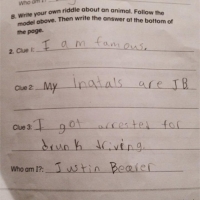 Who am I?:
9. Write your own riddle about an animal. Follow the
model above. Then write the answer at the bottom of
the page.
2. Clue 1: I am famous.
Clue 2: My Inatals are JB
Clue 3: I got arrested for
drunk driving.
Who am I?: Justin Beaver